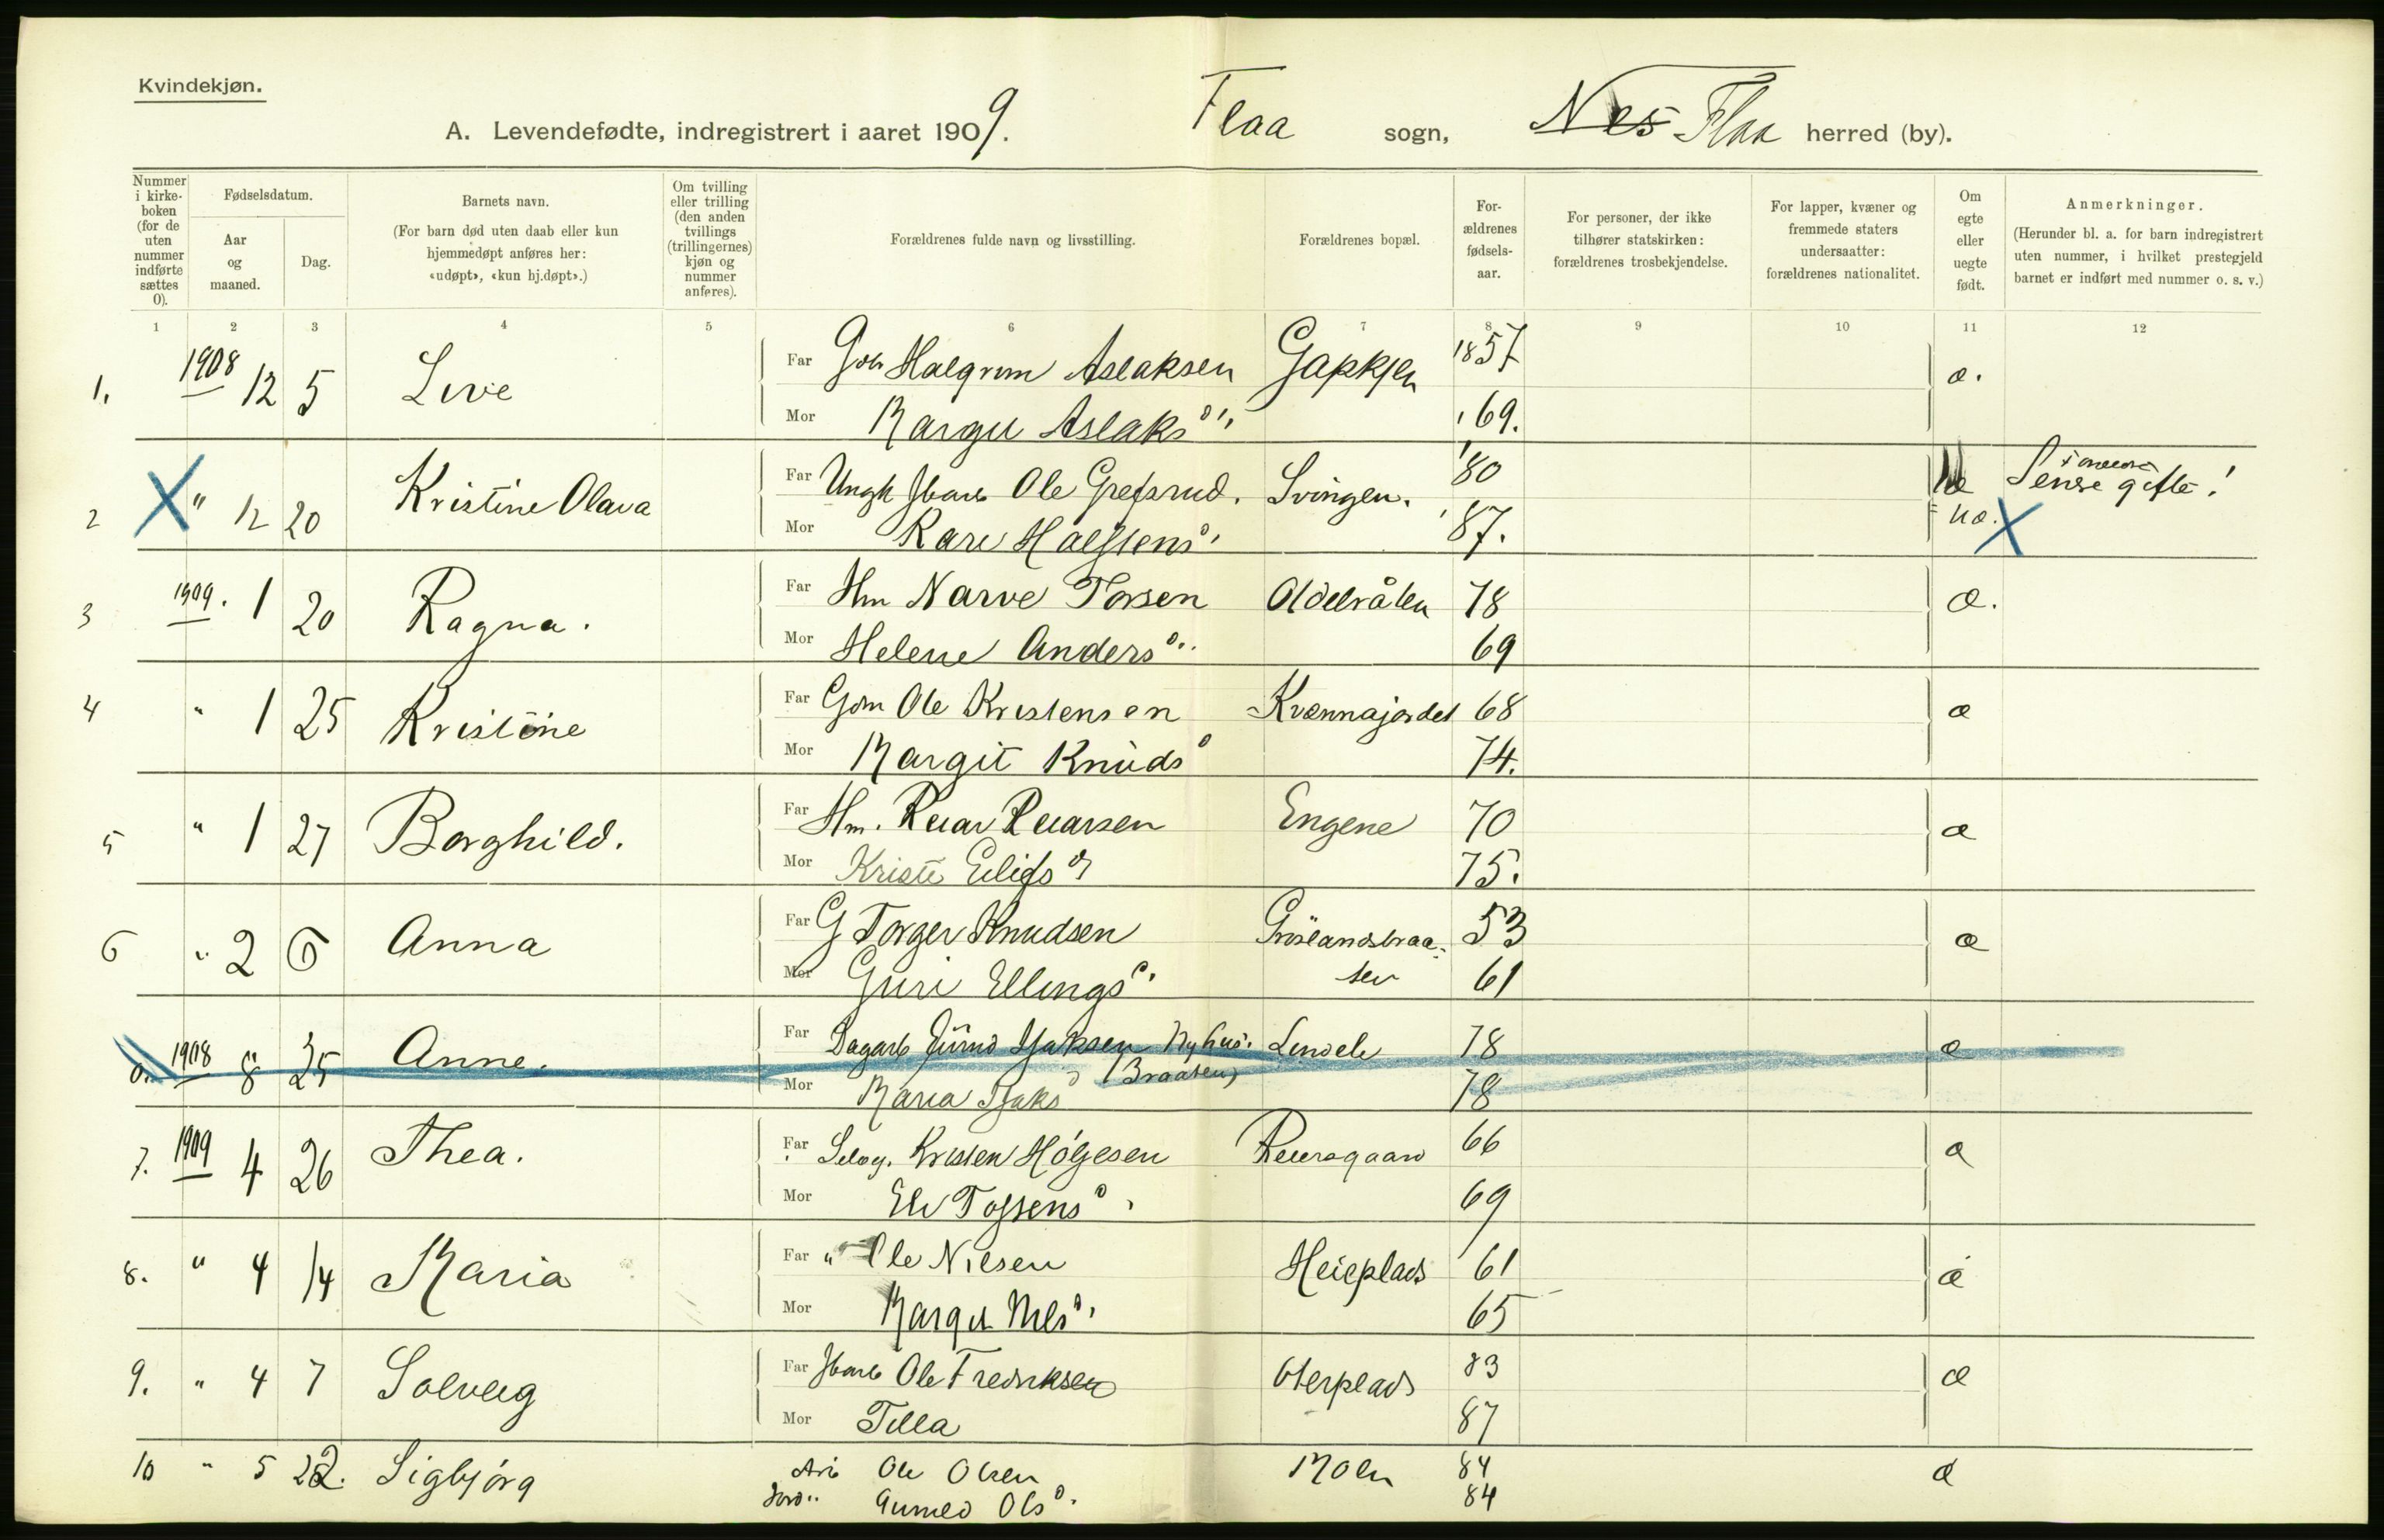 Kvindekjøn.
A. Levendefødte, indregistrert i aaret 1909. Flaa sogn, Nes Flaa herred (by).
Nummer i kirke-boken (for de uten nummer indførte sættes 0).
Fødselsdatum.
Aar og maaned.
Dag.
Barnets navn.
(For barn død uten daab eller kun hjemmedøpt anføres her: «udøpt», «kun hj.døpt».)
Om tvilling eller trilling (den anden tvillings (trillingernes) kjøn og nummer anføres).
Forældrenes fulde navn og livsstilling.
Forældrenes bopæl.
For-ældrenes fødsels-aar.
For personer, der ikke tilhører statskirken: forældrenes trosbekjendelse.
For lapper, kvæner og fremmede staters undersaatter: forældrenes nationalitet.
Om egte eller uegte født.
Anmerkninger.
(Herunder bl. a. for barn indregistrert uten nummer, i hvilket prestegjeld barnet er indført med nummer o. s. v.)
1 2 3 4 5 6 7 8 9 10 11 12
1. 1908 12 5 Live Far Halgrim Aslaksen Gapkjen 1857 æ.
Mor Margit Aslaksd. 69.
2 " 12 20 Kristine Olava Far Ungk Ole Grefsrud. Svingen. 80 Senere gifte!
Mor Kari Halstensd. 87. uæ.
3 1909. 1 20 Ragna. Far Hm Narve Torsen 78 æ.
Mor Helene Andersd. 69
4 " 1 25 Kristine Far Gom Ole Kristensen Kvennajordet 68 æ
Mor Margit Knudsd 74.
5 " 1 27 Borghild. Far Hm. Reiar Reiarsen Engene 70 æ
Mor Kristi Eilifsd 75.
6 " 2 6 Anna Far G Torger Knudsen Gröslandsbraa- 53 æ
Mor Guri Ellingsd. ten 61
0. 1908 8 25 Anne. Far Dagarb Isaksen Nyhus. 78 æ
Mor Maria Isaksd (Braaten) 78
7. 1909 4 26 Thea. Far Selvg. Kristen Hølgesen Reiersgaard 66 æ
Mor 69
8. " 4 14 Maria Far " Ole Nilsen Heieplads 61 æ
Mor Margit Nilsd. 65
9. " 4 7 Solveig Far Jbarb Ole Fredriksen Oterplads 83 æ
Mor Tilla 87
10 " 5 22. Sigbjørg Arb Ole Olsen Moen 84 æ
Gunild Olsd. 84